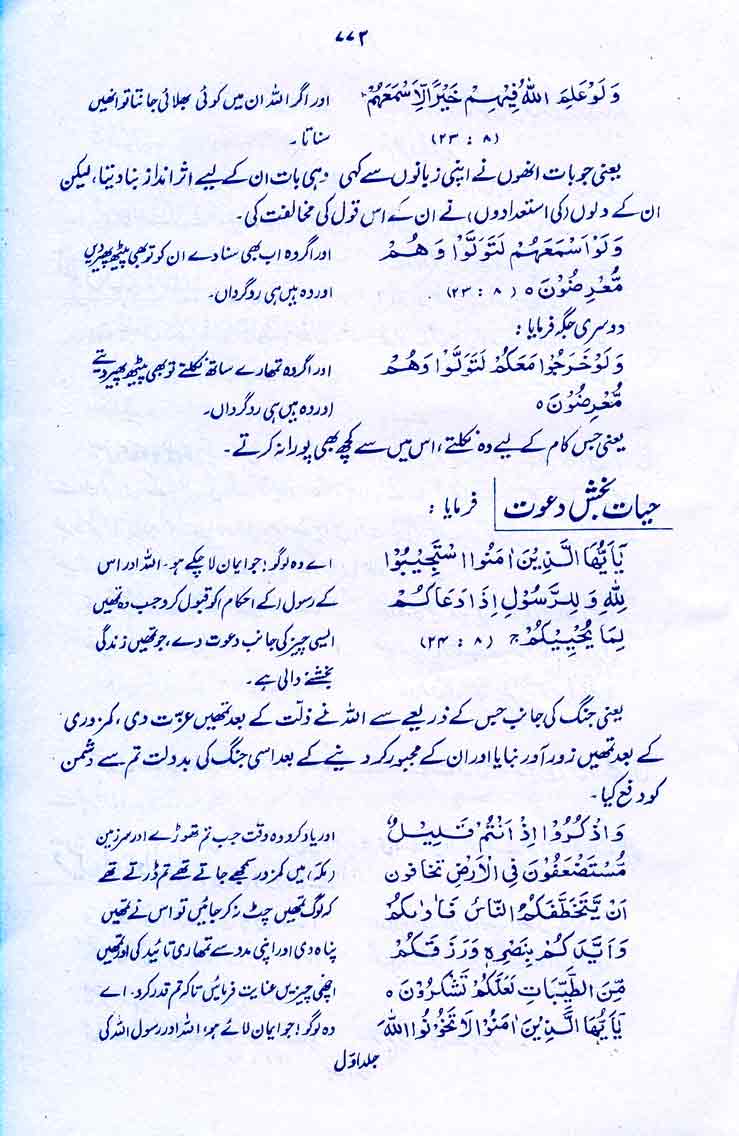 ۷۷۲
وَلَوْ عَلِمَ اللّٰهُ فِيْهِمْ خَيْرًا لَّاَسْمَعَهُمْ ؕ اور اگر اللہ ان میں کوئی بھلائی جانتا تو انھیں
(۸ : ۲۳) سناتا۔
یعنی جو بات انھوں نے اپنی زبانوں سے کہی وہی بات ان کے لیے اثر انداز بنا دیتا، لیکن
ان کے دلوں (کی استعدادوں) نے ان کے اس قول کی مخالفت کی۔
وَلَوْ اَسْمَعَهُمْ لَتَوَلَّوْا وَهُمْ اور اگر وہ اب بھی سنا دے ان کو تو بھی پیٹھ پھیر دیں
مُّعْرِضُوْنَ ○ (۸ : ۲۳) اور وہ ہیں ہی روگرداں۔
دوسری جگہ فرمایا :
وَلَوْ خَرَجُوْا مَعَكُمْ لَتَوَلَّوْا وَهُمْ اور اگر وہ تمھارے ساتھ نکلتے تو بھی پیٹھ پھیر دیتے
مُّعْرِضُوْنَ ○ اور وہ ہیں ہی روگرداں۔
یعنی جس کام کے لیے وہ نکلتے، اس میں سے کچھ بھی پورا نہ کرتے۔
حیات بخش دعوت فرمایا :
يٰۤاَيُّهَا الَّذِيْنَ اٰمَنُوا اسْتَجِيْبُوْا اے وہ لوگو! جو ایمان لا چکے ہو۔ اللہ اور اس
لِلّٰهِ وَلِلرَّسُوْلِ اِذَا دَعَاكُمْ کے رسول (کے احکام) کو قبول کرو جب وہ تمھیں
لِمَا يُحْيِيْكُمْ ۚ (۸ : ۲۴) ایسی چیز کی جانب دعوت دے، جو تمھیں زندگی
بخشنے والی ہے۔
یعنی جنگ کی جانب جس کے ذریعے سے اللہ نے ذلّت کے بعد تمھیں عزت دی، کمزوری
کے بعد تمھیں زور آور بنایا اور ان کے مجبور کر دینے کے بعد اسی جنگ کی بدولت تم سے دشمن
کو دفع کیا۔
وَاذْكُرُوْۤا اِذْ اَنْتُمْ قَلِيْلٌ اور یاد کرو وہ وقت جب تم تھوڑے اور سرزمین
مُّسْتَضْعَفُوْنَ فِى الْاَرْضِ تَخَافُوْنَ (مکہ) میں کمزور سمجھے جاتے تھے تم ڈرتے تھے
اَنْ يَّتَخَطَّفَكُمُ النَّاسُ فَاٰوٰىكُمْ کہ لوگ تمھیں چٹ نہ کر جائیں تو اس نے تمھیں
وَاَيَّدَكُمْ بِنَصْرِهٖ وَرَزَقَكُمْ پناہ دی اور اپنی مدد سے تمھاری تائید کی اور تمھیں
مِّنَ الطَّيِّبَاتِ لَعَلَّكُمْ تَشْكُرُوْنَ ○ اچھی چیزیں عنایت فرمائیں تاکہ تم قدر کرو۔ اے
يٰۤاَيُّهَا الَّذِيْنَ اٰمَنُوْا لَا تَخُوْنُوا اللّٰهَ وہ لوگو! جو ایمان لائے ہو، اللہ اور رسول اللہ کی
جلد اوّل